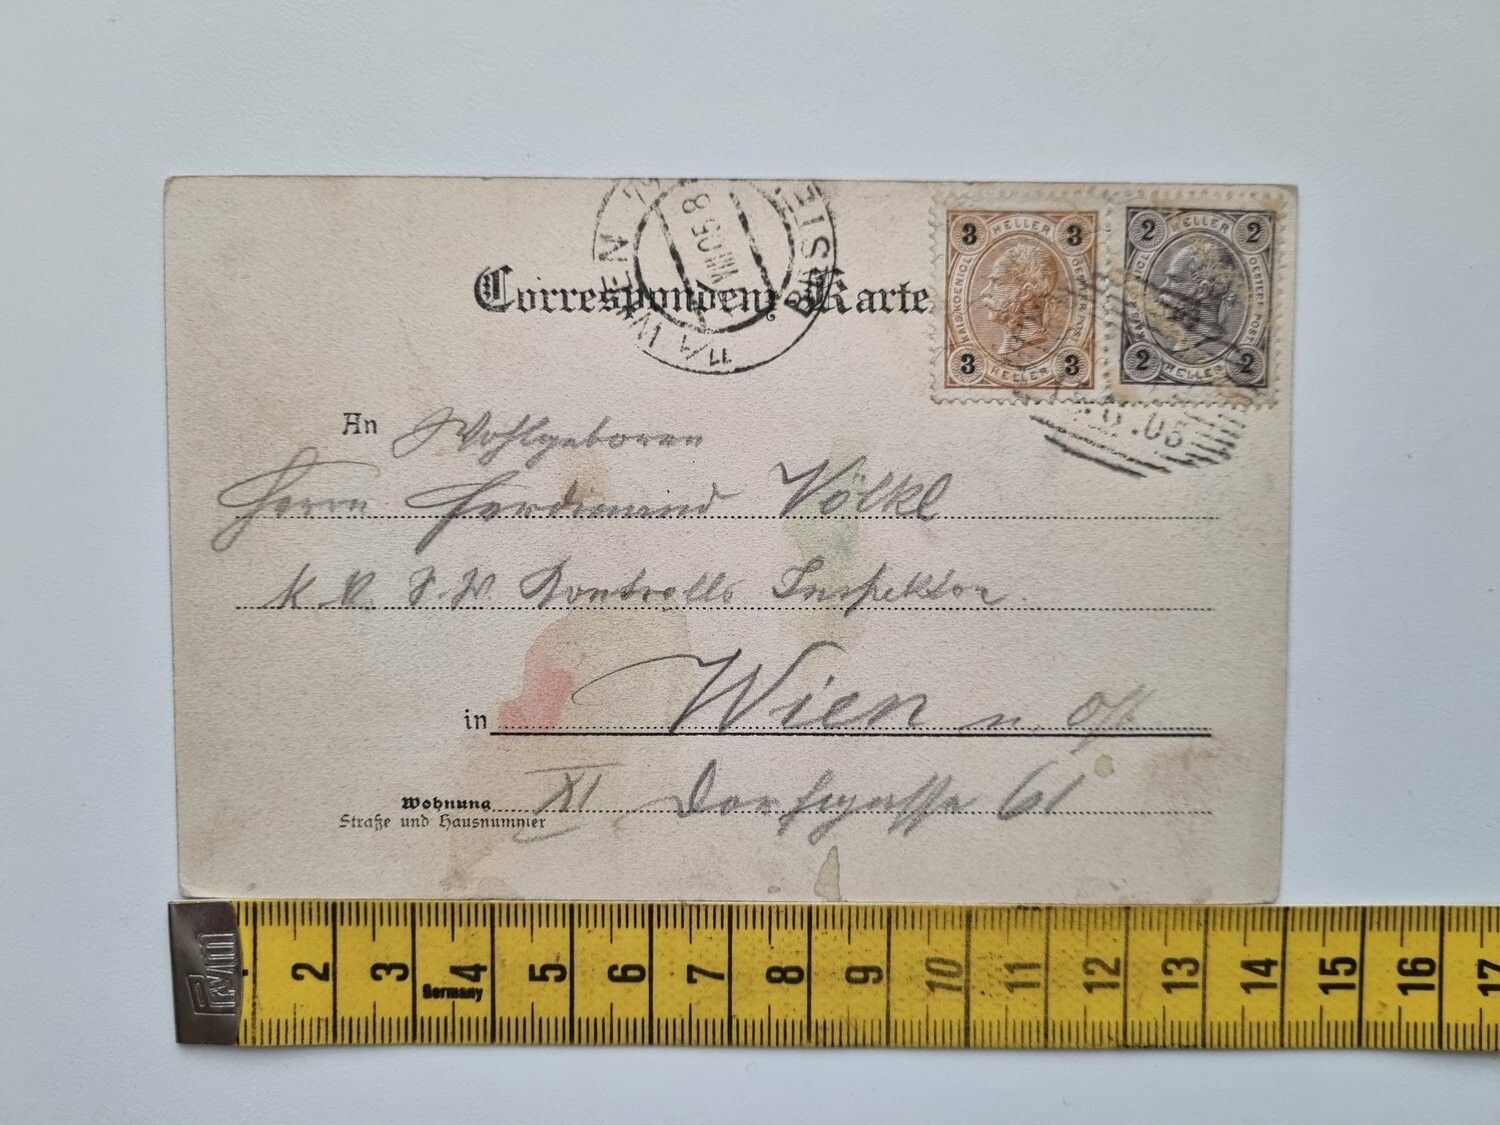 Correspondenz-Karte
11/1 WIEN
VIII 05 8
3 HELLER 3
KAIS. KOENIGL. OESTERR. POST
3 HELLER 3
2 HELLER 2
KAIS. KOENIGL. OESTERR. POST
2 HELLER 2
8.05
An Wohlgeboren
Herrn Ferdinand Völkl
K. K. Kontrolls Inspektor
in Wien
Wohnung XI. Dorfgasse 61
Straße und Hausnummer
PRYM
1 2 3 4 5 6 7 8 9 10 11 12 13 14 15 16 17
Germany